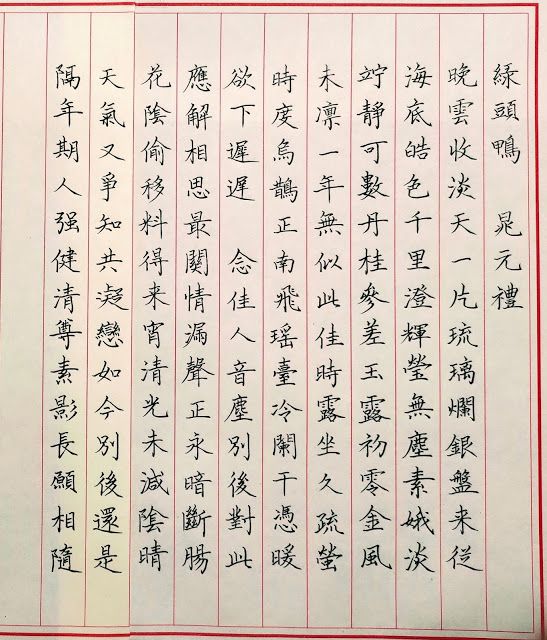 綠頭鴨　晁元禮
晚雲收淡天一片琉璃爛銀盤来從
海底皓色千里澄輝瑩無塵素娥淡
竚靜可數丹桂參差玉露初零金風
未凛一年無似此佳時露坐久疏螢
時度烏鵲正南飛瑶臺冷闌干憑暖
欲下遲遲　念佳人音塵別後對此
應解相思最關情漏聲正永暗斷腸
花陰偷移料得来宵清光未減陰晴
天氣又爭知共凝戀如今別後還是
隔年期人强健清尊素影長願相隨